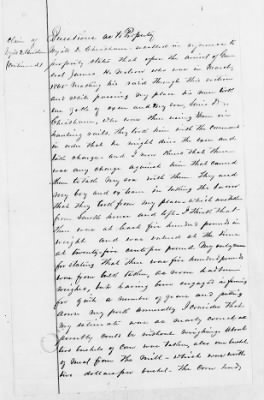 Claim of
Wyatt D. Chisholm
Continued
Questions as to Property
Wyatt D. Chisholm recalled in reference to
property states that upon the arrival of Gen-
eral James H. Wilson who was in March,
1865 making his raid through this section
and while passing my place his men took
one yoke of oxen and my son, Louis D.
Chisholm, who was then using them in
hauling rails. They took him with the command
in order that he might drive the oxen and
was any charge against him that caused
them to take my son with them. They used
my boy and oxen in taking the bacon
that they took from my place which
from smoke house and left. I think that
there was at least five hundred pounds in
weight and was valued at the time
at twenty-five cents per pound. My only reason
for stating that there was five hundred pounds
was from bulk taken, as none had been
weighed, but having been engaged in farming
for quite a number of years and putting
down my pork annually I consider that
my estimate was as nearly correct as
possibly could be without weighing. About
two bushels of corn was taken, also one bushel
of meal from the mill - which was worth
two dollars per bushel. The corn had